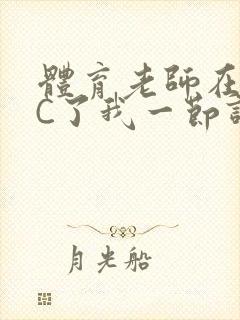 體育老師在
C了我一節
月光船